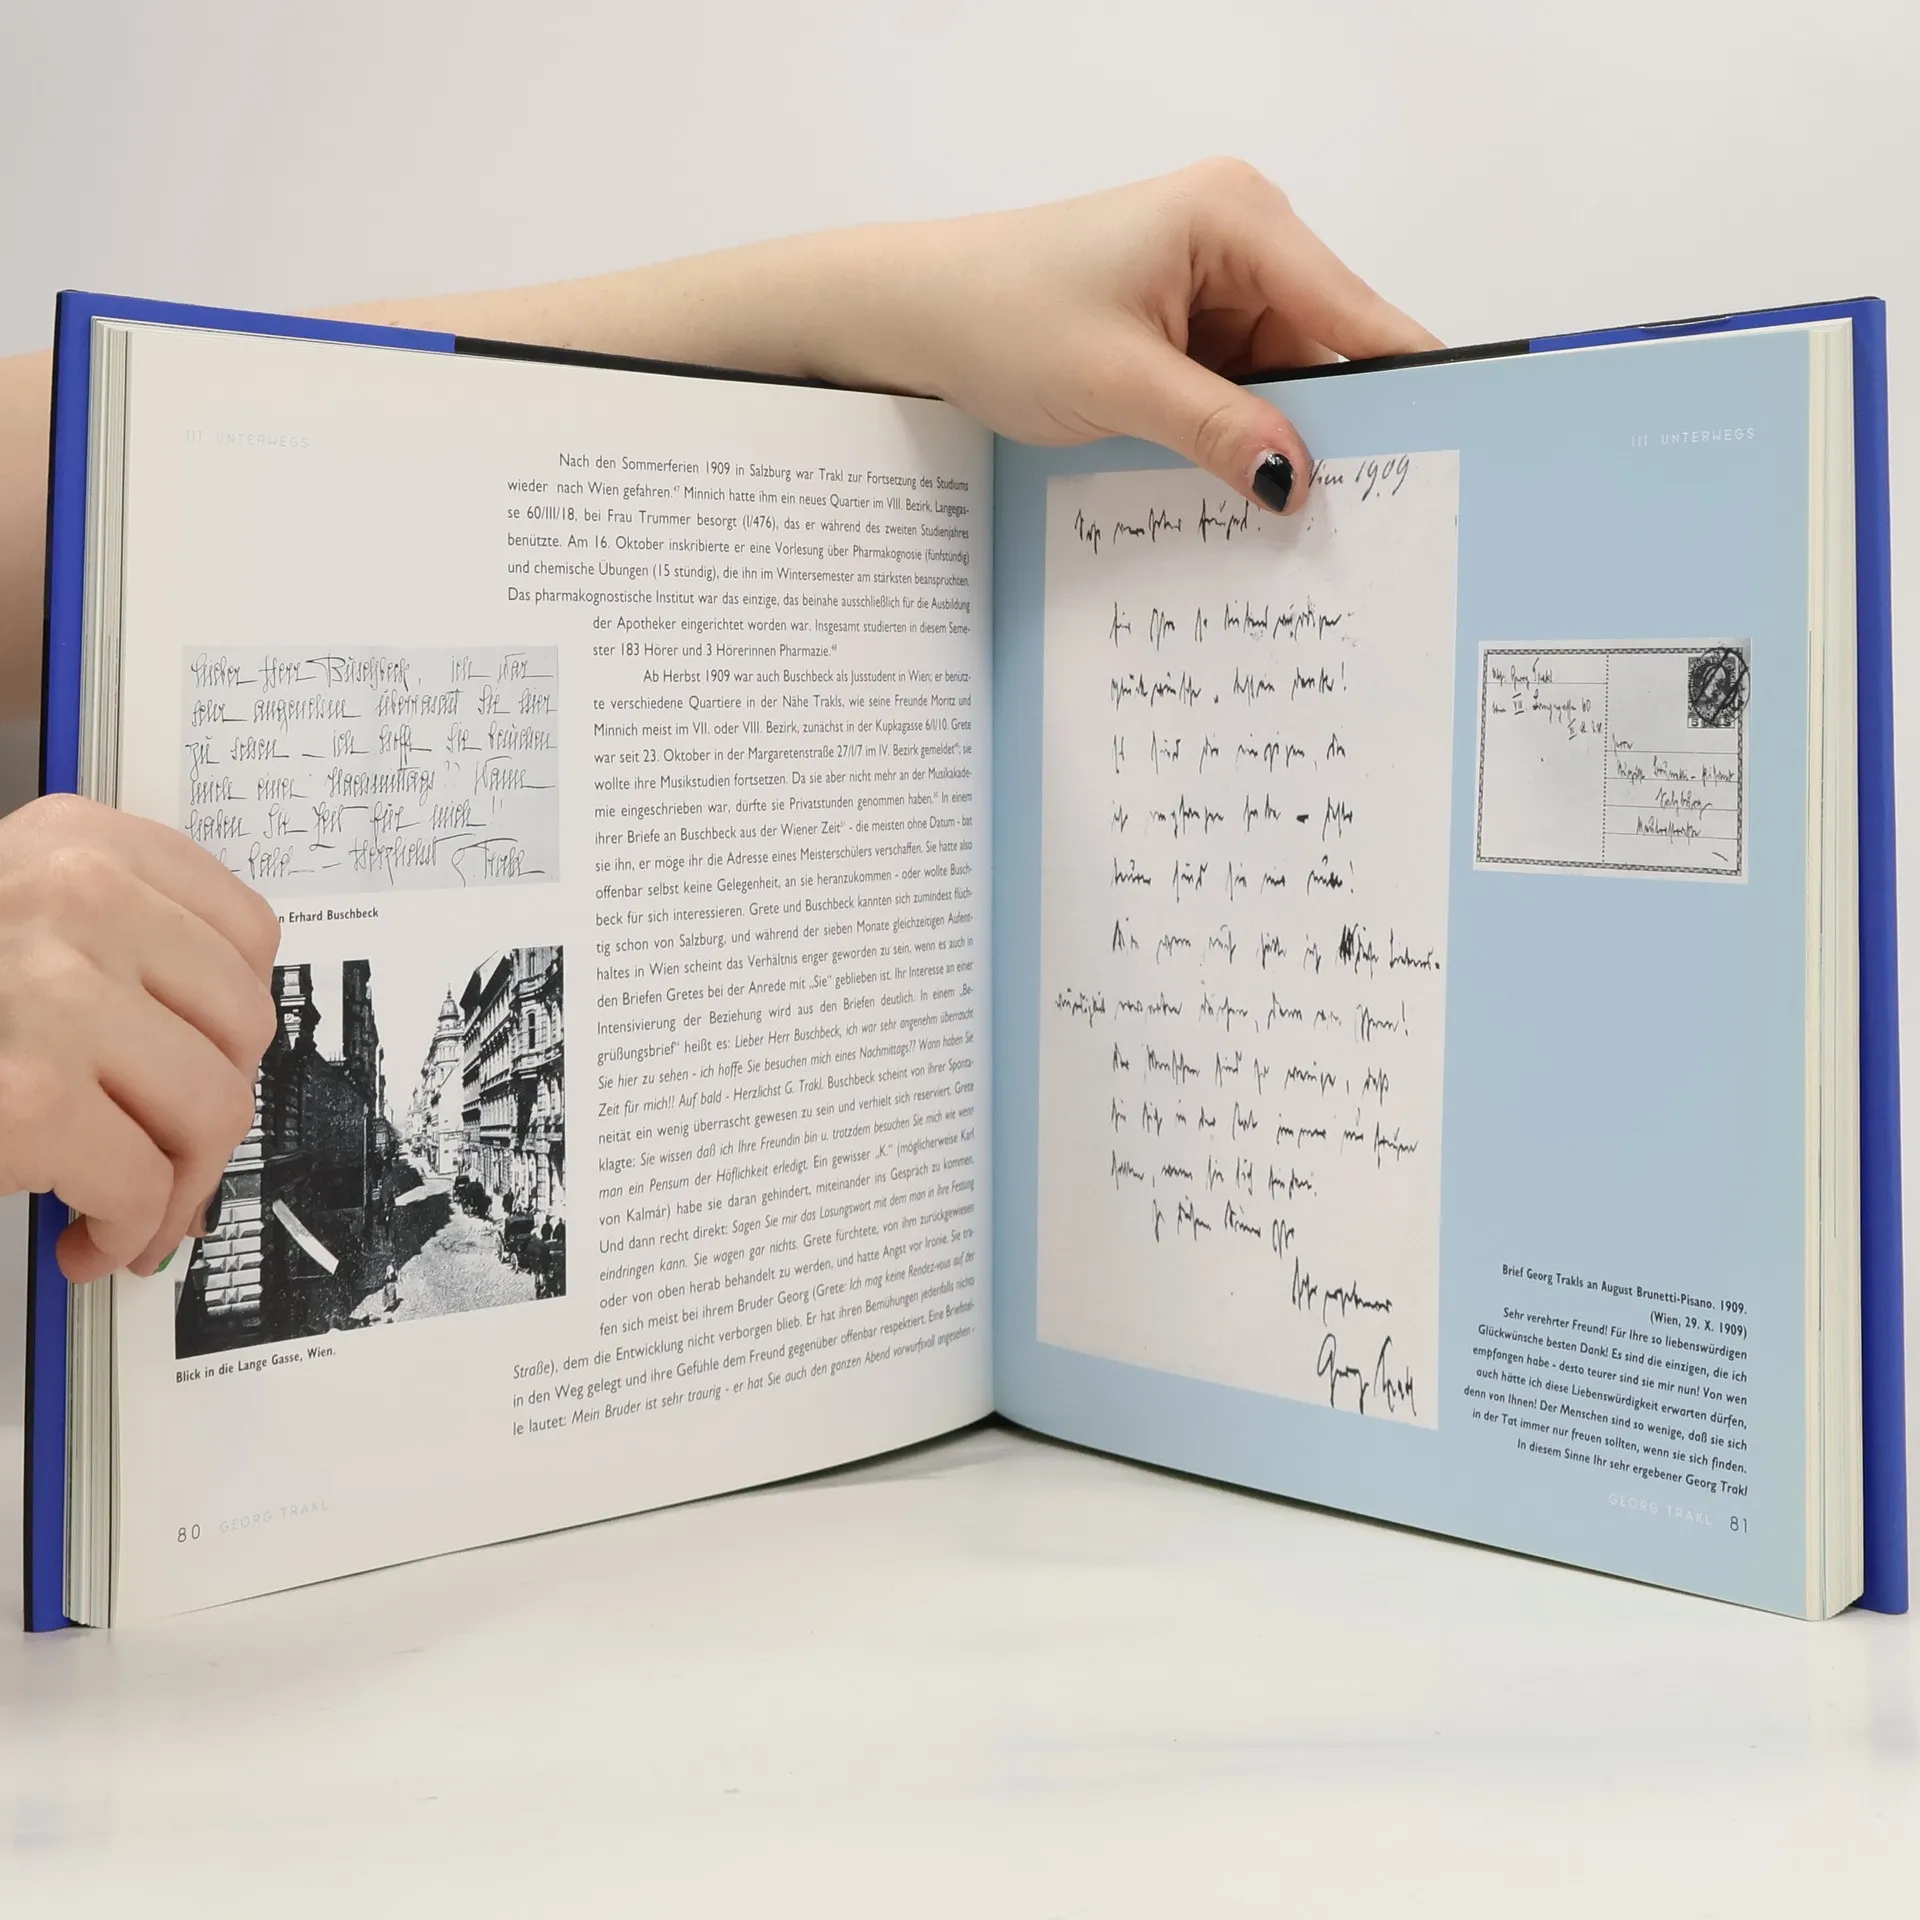 III UNTERWEGS
Nach den Sommerferien 1909 in Salzburg war Trakl zur Fortsetzung des Studiums
wieder nach Wien gefahren.⁴⁷ Minnich hatte ihm ein neues Quartier im VIII. Bezirk, Langegas-
se 60/III/18, bei Frau Trummer besorgt (I/476), das er während des zweiten Studienjahres
benützte. Am 16. Oktober inskribierte er eine Vorlesung über Pharmakognosie (fünfstündig)
und chemische Übungen (15 stündig), die ihn im Wintersemester am stärksten beanspruchten.
Das pharmakognostische Institut war das einzige, das beinahe ausschließlich für die Ausbildung
der Apotheker eingerichtet worden war. Insgesamt studierten in diesem Seme-
ster 183 Hörer und 3 Hörerinnen Pharmazie.⁴⁸
Ab Herbst 1909 war auch Buschbeck als Jusstudent in Wien; er benütz-
te verschiedene Quartiere in der Nähe Trakls, wie seine Freunde Moritz und
Minnich meist im VII. oder VIII. Bezirk, zunächst in der Kupkagasse 6/I/10. Grete
war seit 23. Oktober in der Margaretenstraße 27/I/7 im IV. Bezirk gemeldet; sie
wollte ihre Musikstudien fortsetzen. Da sie aber nicht mehr an der Musikakade-
mie eingeschrieben war, dürfte sie Privatstunden genommen haben. In einem
ihrer Briefe an Buschbeck aus der Wiener Zeit - die meisten ohne Datum - bat
sie ihn, er möge ihr die Adresse eines Meisterschülers verschaffen. Sie hatte also
offenbar selbst keine Gelegenheit, an sie heranzukommen - oder wollte Busch-
beck für sich interessieren. Grete und Buschbeck kannten sich zumindest flüch-
tig schon von Salzburg, und während der sieben Monate gleichzeitigen Aufent-
haltes in Wien scheint das Verhältnis enger geworden zu sein, wenn es auch in
den Briefen Gretes bei der Anrede mit „Sie" geblieben ist. Ihr Interesse an einer
Intensivierung der Beziehung wird aus den Briefen deutlich. In einem „Be-
grüßungsbrief" heißt es: Lieber Herr Buschbeck, ich war sehr angenehm überrascht
Sie hier zu sehen - ich hoffe Sie besuchen mich eines Nachmittags?? Wann haben Sie
Zeit für mich!! Auf bald - Herzlichst G. Trakl. Buschbeck scheint von ihrer Sponta-
neität ein wenig überrascht gewesen zu sein und verhielt sich reserviert. Grete
klagte: Sie wissen daß ich Ihre Freundin bin u. trotzdem besuchen Sie mich wie wenn
man ein Pensum der Höflichkeit erledigt. Ein gewisser „K." (möglicherweise Karl
von Kalmár) habe sie daran gehindert, miteinander ins Gespräch zu kommen.
Und dann recht direkt: Sagen Sie mir das Losungswort mit dem man in ihre Festung
eindringen kann. Sie wagen gar nichts. Grete fürchtete, von ihm zurückgewiesen
oder von oben herab behandelt zu werden, und hatte Angst vor Ironie. Sie tra-
fen sich meist bei ihrem Bruder Georg (Grete: Ich mag keine Rendez-vous auf der
Straße), dem die Entwicklung nicht verborgen blieb. Er hat ihren Bemühungen jedenfalls nichts
in den Weg gelegt und ihre Gefühle dem Freund gegenüber offenbar respektiert. Eine Briefstel-
le lautet: Mein Bruder ist sehr traurig - er hat Sie auch den ganzen Abend vorwurfsvoll angesehen -
Lieber Herr Buschbeck, ich war
sehr angenehm überrascht Sie hier
zu sehen - ich hoffe Sie besuchen
mich eines Nachmittags?? Wann
haben Sie Zeit für mich!!
bald - Herzlichst G. Trakl
Erhard Buschbeck
Blick in die Lange Gasse, Wien.
80 GEORG TRAKL
III UNTERWEGS
Wien 1909
Sehr verehrter Freund!
Für Ihre so liebenswürdigen
Glückwünsche besten Dank!
Es sind die einzigen, die
ich empfangen habe - desto
teurer sind sie mir nun!
Von wem auch hätte ich diese Liebens-
würdigkeit erwarten dürfen, denn von Ihnen!
Der Menschen sind so wenige, daß
sie sich in der Tat immer nur freuen
sollten, wenn sie sich finden.
In diesem Sinne Ihr
sehr ergebener
Georg Trakl
Georg Trakl
Wien VIII. Langegasse 60
Herrn
Salzburg
Brief Georg Trakls an August Brunetti-Pisano. 1909.
(Wien, 29. X. 1909)
Sehr verehrter Freund! Für Ihre so liebenswürdigen
Glückwünsche besten Dank! Es sind die einzigen, die ich
empfangen habe - desto teurer sind sie mir nun! Von wem
auch hätte ich diese Liebenswürdigkeit erwarten dürfen,
denn von Ihnen! Der Menschen sind so wenige, daß sie sich
in der Tat immer nur freuen sollten, wenn sie sich finden.
In diesem Sinne Ihr sehr ergebener Georg Trakl
GEORG TRAKL 81